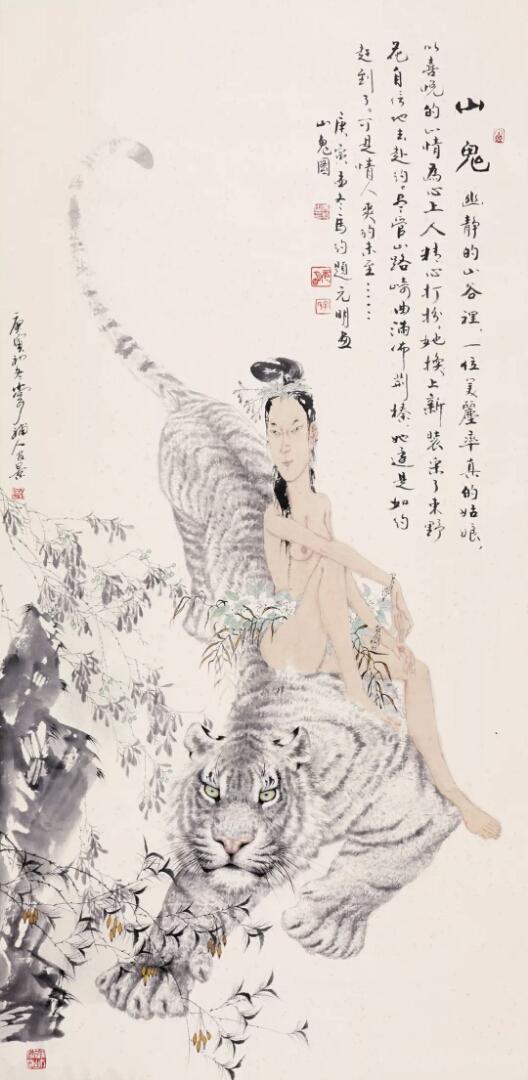 山鬼 幽静的山谷裡，一位美丽率真的姑娘，
以喜悦的心情為心上人精心打扮，她换上新装采了束野
花自信地去赴约。尽管山路崎曲满佈荆榛，她还是如约
赶到了。可是情人爽约未至……
庚寅孟冬馬约題元明画
山鬼图
庚寅初冬